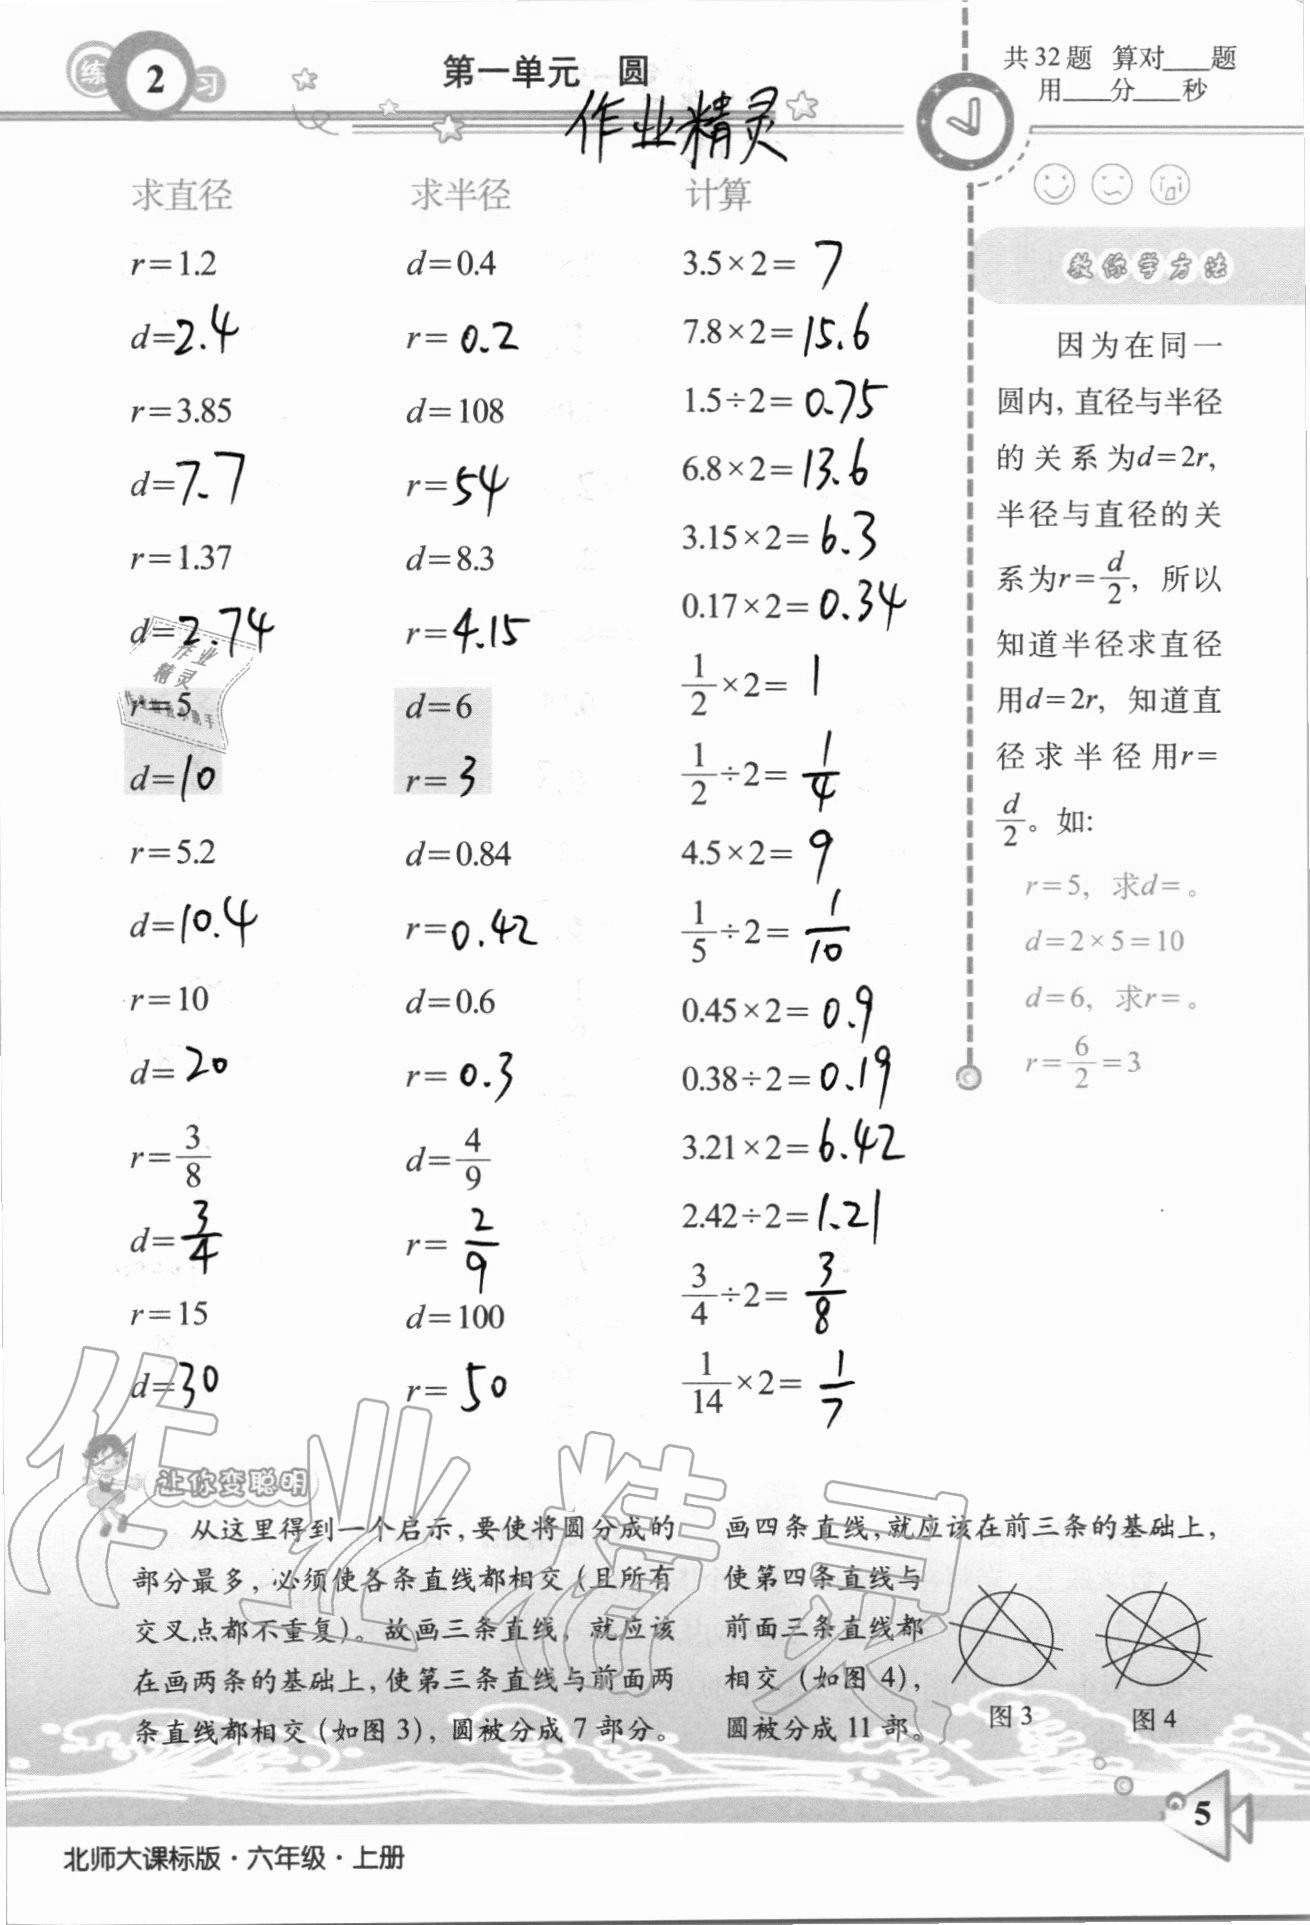 练 2 习
第一单元 圆
共32题 算对____题
用____分____秒
作业精灵
求直径
r=1.2
d=2.4
r=3.85
d=7.7
r=1.37
d=2.74
r=5
d=10
r=5.2
d=10.4
r=10
d=20
r=3/8
d=3/4
r=15
d=30
求半径
d=0.4
r=0.2
d=108
r=54
d=8.3
r=4.15
d=6
r=3
d=0.84
r=0.42
d=0.6
r=0.3
d=4/9
r=2/9
d=100
r=50
计算
3.5×2=7
7.8×2=15.6
1.5÷2=0.75
6.8×2=13.6
3.15×2=6.3
0.17×2=0.34
1/2×2=1
1/2÷2=1/4
4.5×2=9
1/5÷2=1/10
0.45×2=0.9
0.38÷2=0.19
3.21×2=6.42
2.42÷2=1.21
3/4÷2=3/8
1/14×2=1/7
教你学方法
因为在同一
圆内,直径与半径
的关系为d=2r,
半径与直径的关
系为r=d/2,所以
知道半径求直径
用d=2r,知道直
径求半径用r=
d/2。如:
r=5,求d=。
d=2×5=10
d=6,求r=。
r=6/2=3
作业
精灵
让你变聪明
从这里得到一个启示,要使将圆分成的
部分最多,必须使各条直线都相交(且所有
交叉点都不重复)。故画三条直线,就应该
在画两条的基础上,使第三条直线与前面两
条直线都相交(如图3),圆被分成7部分。
画四条直线,就应该在前三条的基础上,
使第四条直线与
前面三条直线都
相交(如图4),
圆被分成11部。
图3
图4
作业精灵
5
北师大课标版·六年级·上册